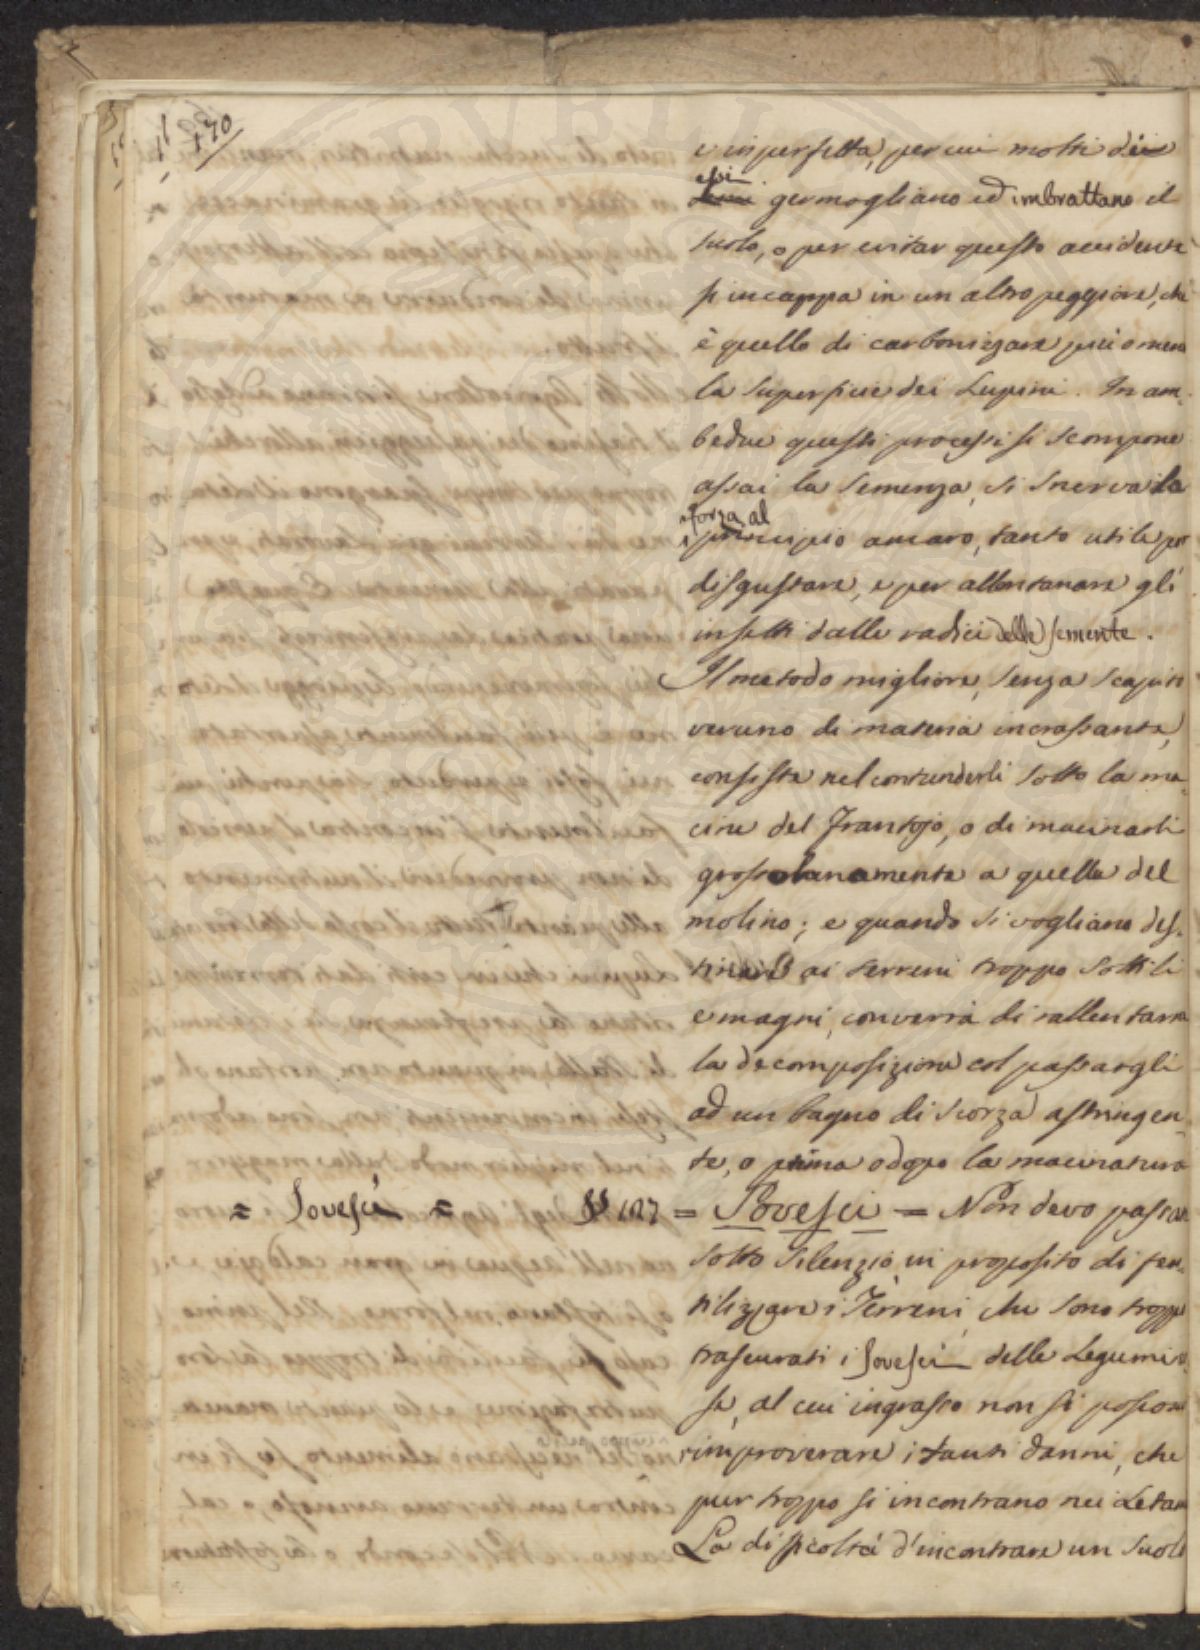 170
e imperfetta, per cui molti dei
essi
germogliano ed imbrattano il
suolo, o per evitar questo accidente
si incappa in un altro peggiore, che
è quello di carbonizzare più o meno
la superficie dei Lupini. In am-
bedue questi processi si scompone
assai la semenza, si snerva la
forza al
principio amaro, tanto utile per
disgustare, e per allontanare gli
insetti dalle radici delle semente.
Il metodo migliore, senza scapito
veruno di materia incrassante,
consiste nel contunderli sotto la ma-
cine del Frantojo, o di macinarli
grossolanamente a quella del
molino; e quando si vogliano des-
tinare ai terreni troppo sottili
e magri, converrà di rallentarne
la decomposizione col passargli
ad un bagno di scorza astringen-
te, o prima o dopo la macinatura
= Sovesci = § 127 = Sovesci = Non devo passare
sotto silenzio, in proposito di fer-
tilizzare i Terreni, che sono troppo
trascurati i Sovesci delle Legumino-
se, al cui ingrasso non si possono
rimproverare i tanti danni, che
pur troppo si incontrano nei Letami
La difficoltà d'incontrare un suolo